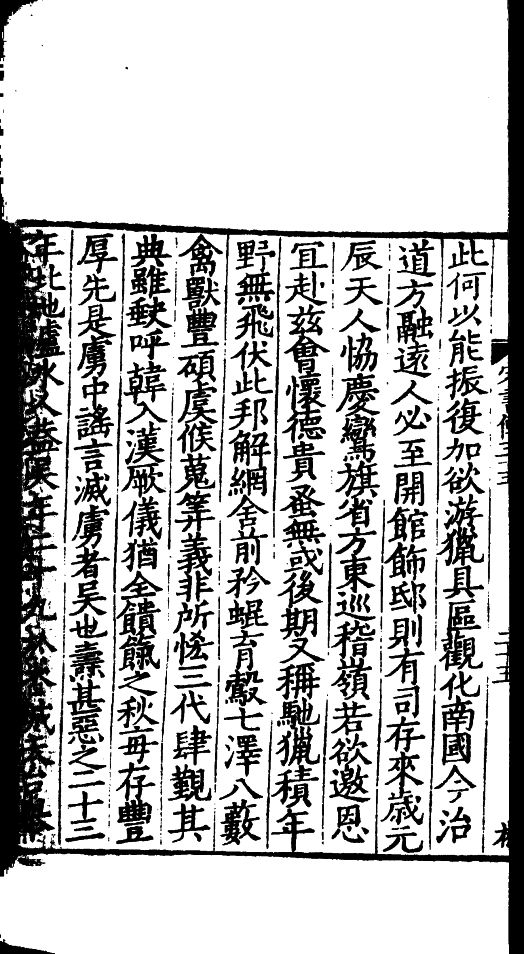 此何以能振復加欲游獵具區觀化南國今治
道方融遠人必至開館飾邸則有司存來歲元
辰天人恊慶鸞旗省方東巡稽嶺若欲邀恩
宜赴兹會懷德貴蚤無或後期又稱馳獵積年
野無飛伏此邦解網舍前矜蜫育鷇七澤八藪
禽獸豐碩虞候蒐筭義非所恡三代肆覲其
典雖缺呼韓入漢厥儀猶全饋餼之秋毎存豐
厚先是虜中謠言滅虜者吴也燾甚惡之二十三
年北地盧水